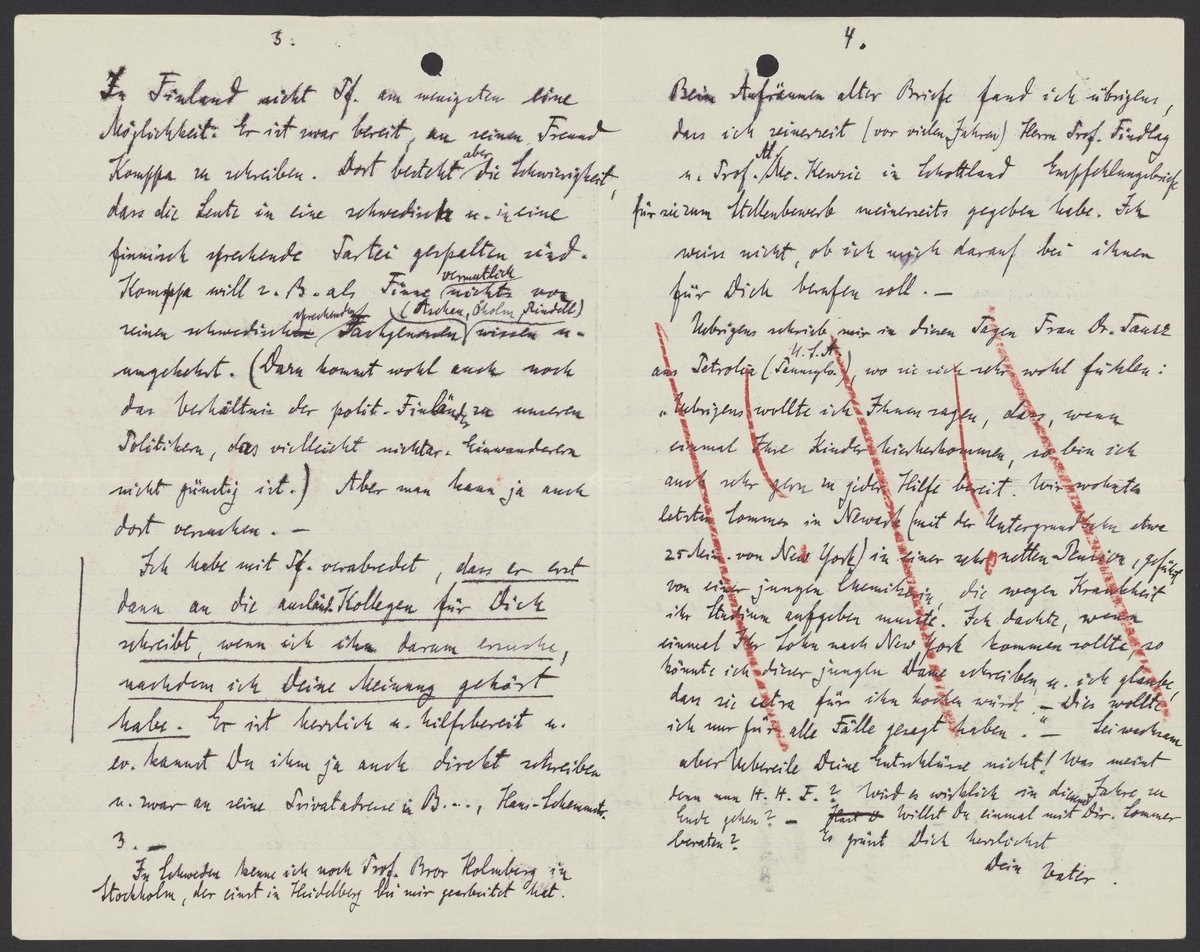 3.
In Finland sieht Pf. am wenigsten eine
Möglichkeit. Er ist zwar bereit, an seinen Freund
Komppa zu schreiben. Dort besteht aber die Schwierigkeit,
dass die Leute in eine schwedisch u. in eine
finnisch sprechende Partei gespalten sind.
Komppa will z. B. als Finne vermutlich nichts von
seinen schwedisch sprechenden Fachgenossen (Aschan, Öholm, Rindell) wissen u.
umgekehrt. (Dazu kommt wohl auch noch
das Verhältnis der polit. Finländer zu unseren
Politikern, das vielleicht nichtar. Einwanderern
nicht günstig ist.) Aber man kann ja auch
dort versuchen. —
Ich habe mit Pf. verabredet, dass er erst
dann an die ausländ. Kollegen für Dich
schreibt, wenn ich ihn darum ersuche,
nachdem ich Deine Meinung gehört
habe. Er ist herzlich u. hilfsbereit u.
ev. kannst Du ihm ja auch direkt schreiben
u. zwar an seine Privatadresse in B..., Hans-Schemmstr.
3. —
In Schweden kenne ich noch Prof. Bror Holmberg in
Stockholm, der einst in Heidelberg bei mir gearbeitet hat.
4.
Beim Aufräumen alter Briefe fand ich übrigens,
dass ich seinerzeit (vor vielen Jahren) Herrn Prof. Findlay
u. Prof. Al. Mc. Kenzie in Schottland Empfehlungsbriefe
für sie zum Stellenbewerb meinerseits gegeben habe. Ich
weiss nicht, ob ich mich darauf bei ihnen
für Dich berufen soll. —
Uebrigens schrieb mir in diesen Tagen Frau Dr.
aus Petrolia (Pennsylv. U.S.A.), wo sie sich sehr wohl fühlen:
"Uebrigens wollte ich Ihnen sagen, dass, wenn
einmal Ihre Kinder hierherkommen, so bin ich
auch sehr gern zu jeder Hilfe bereit. Wir wohnten
letzten Sommer in Newark (mit der Untergrundbahn etwa
25 Min. von New York) in einer sehr netten Pension, geführt
von einer jungen Chemikerin, die wegen Krankheit
ihr Studium aufgeben musste. Ich dachte, wenn
einmal Ihr Sohn nach New York kommen sollte, so
könnte ich dieser jungen Dame schreiben u. ich glaube,
dass sie extra für ihn kochen würde. — Dies wollte
ich nur für alle Fälle gesagt haben." — Sei wachsam
aber Uebereile Deine Entschlüsse nicht! Was meint
denn nun H. H. F.? Wird es wirklich in diesem Jahre zu
Ende gehen? — Willst Du einmal mit Dir. Sommer
beraten? Es grüsst Dich herzlichst
Dein Vater.